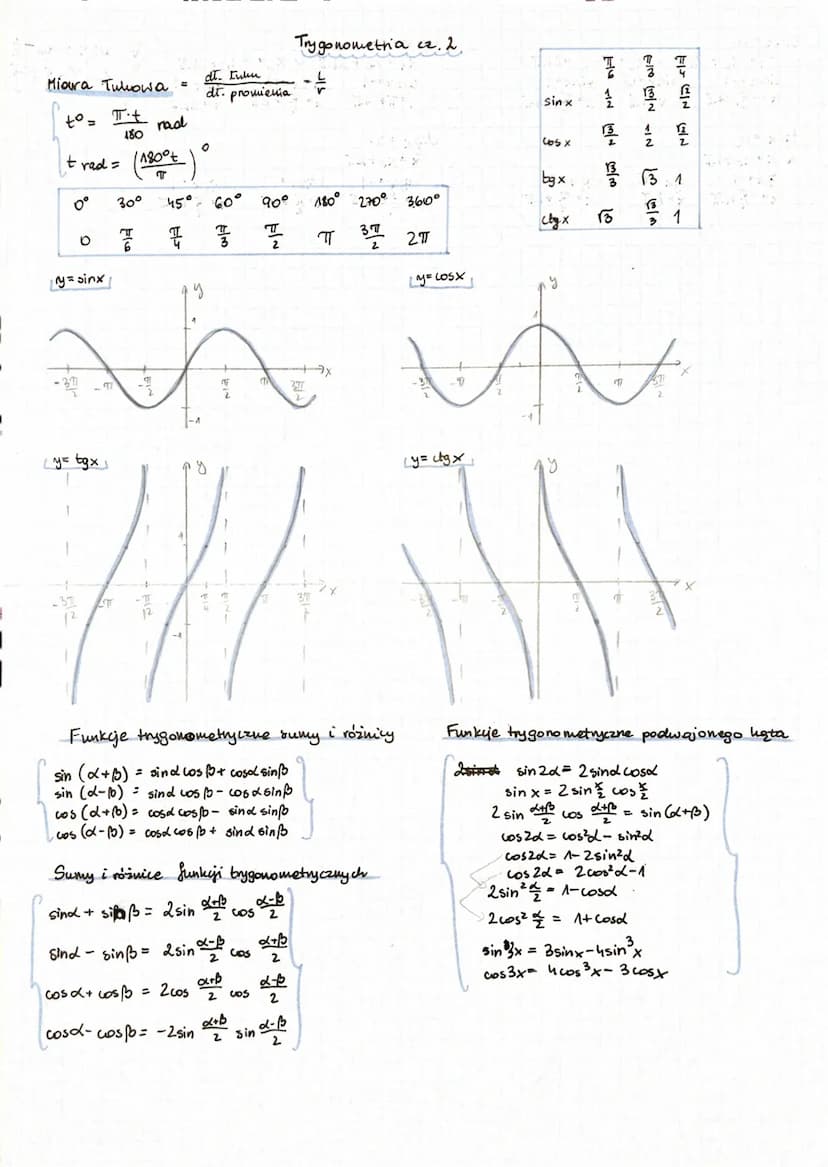 Trygonometria cz. 2
Miara Łukowa = dł. łuku / dł. promienia = L/r
t° = π·t/180 rad
t rad = (180°t/π)°
0° 30° 45° 60° 90° 180° 270° 360°
0 π/6 π/4 π/3 π/2 π 3π/2 2π
π/6 π/3 π/4
sin x 1/2 √3/2 √2/2
cos x √3/2 1/2 √2/2
tg x √3/3 √3 1
ctg x √3 √3/3 1
y = sinx
y
1
x
-3π/2 -π -π/2 π/2 π 3π/2
-1
y = cosx
y
1
x
-3π/2 -π -π/2 π/2 π 3π/2
-1
y = tgx
y
1
x
-3π/2 -π -π/2 π/4 π/2 π 3π/2
-1
y = ctgx
y
x
-3π/2 -π -π/2 π/2 π 3π/2
Funkcje trygonometryczne sumy i różnicy
sin (α+β) = sinα cosβ + cosα sinβ
sin (α-β) = sinα cosβ - cosα sinβ
cos (α+β) = cosα cosβ - sinα sinβ
cos (α-β) = cosα cosβ + sinα sinβ
Sumy i różnice funkcji trygonometrycznych
sinα + sinβ = 2sin α+β/2 cos α-β/2
sinα - sinβ = 2sin α-β/2 cos α+β/2
cosα + cosβ = 2cos α+β/2 cos α-β/2
cosα - cosβ = -2sin α+β/2 sin α-β/2
Funkcje trygonometryczne podwojonego kąta
sin2α = 2sinα cosα
sin x = 2 sin x/2 cos x/2
2 sin α+β/2 cos α+β/2 = sin(α+β)
cos2α = cos²α - sin²α
cos2α = 1 - 2sin²α
cos2α = 2cos²α - 1
2sin² α/2 = 1 - cosα
2cos² α/2 = 1 + cosα
sin3x = 3sinx - 4sin³x
cos3x = 4cos³x - 3cosx